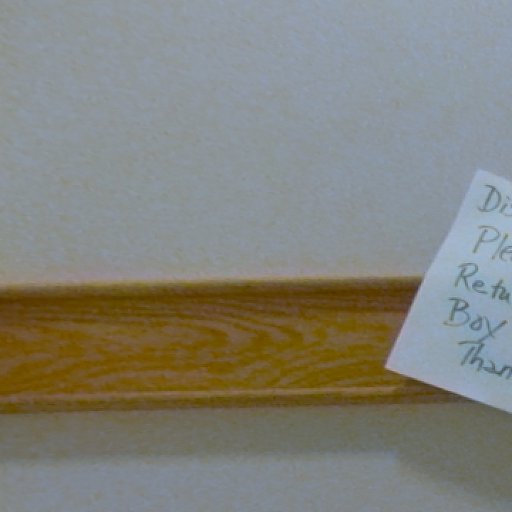 Dis
Ple
Retu
Box
Than